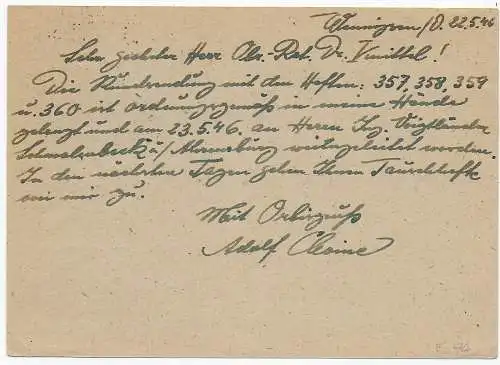 Wennigsen/D. 22.5.46
Sehr geehrter Herr Ob.-Rat. Dr.
Die Rundsendung mit den Heften: 357, 358, 359
u. 360 ist ordnungsgemäß in meine Hände
gelangt und am 23.5.46. an Herrn Ing. Voigtländer
Schmalenbeck ü/Ahrensburg weitergeleitet worden.
In den nächsten Tagen gehen Ihnen Tauschhefte
von mir zu.
Mit
Adolf